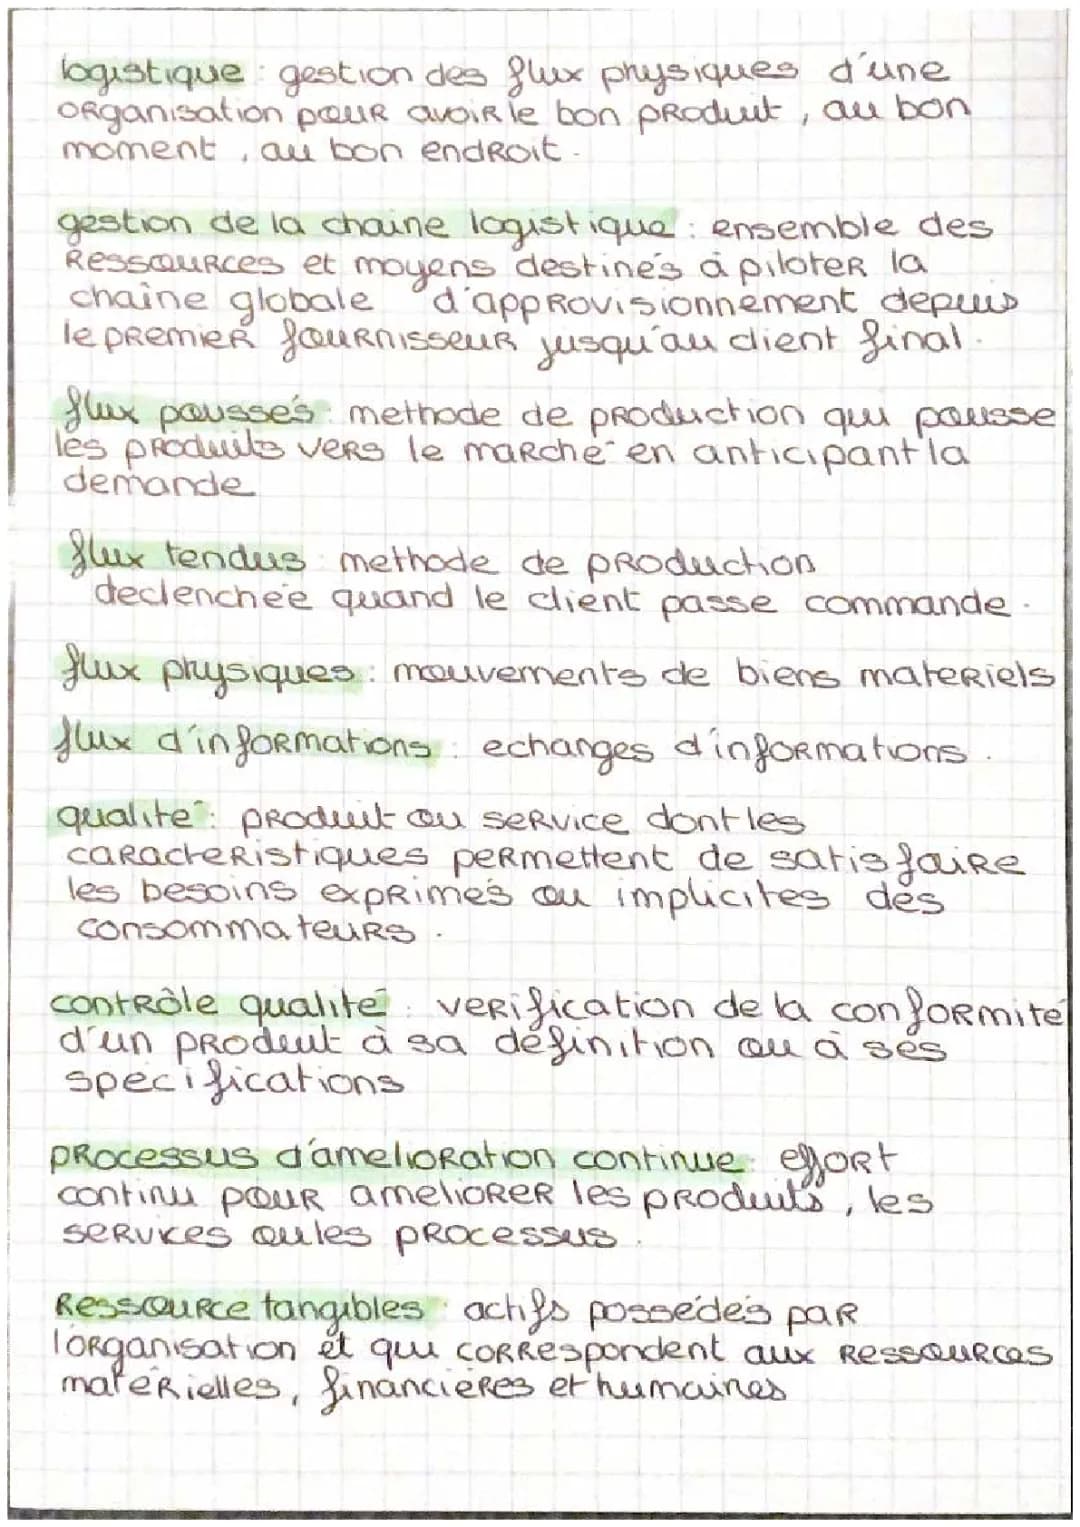 logistique : gestion des flux physiques d'une
organisation pour avoir le bon produit, au bon
moment, au bon endroit.
gestion de la chaine logistique : ensemble des
Ressources et moyens destinés à piloter la
chaîne globale d'approvisionnement depuis
le premier fournisseur jusqu'au client final.
flux poussés : methode de production qui pousse
les produits vers le marché en anticipant la
demande
flux tendus : methode de production
declenchée quand le client passe commande.
flux physiques : mouvements de biens materiels
flux d'informations : echanges d'informations.
qualité : produit ou service dont les
caracteristiques permettent de satisfaire
les besoins exprimés ou implicites des
consommateurs.
contrôle qualité : verification de la conformité
d'un produit à sa définition ou à ses
spécifications
processus d'amelioration continue : effort
continu pour ameliorer les produits, les
services ou les processus.
Ressource tangibles : actifs possédés par
l'organisation et qui correspondent aux ressources
matérielles, financières et humaines